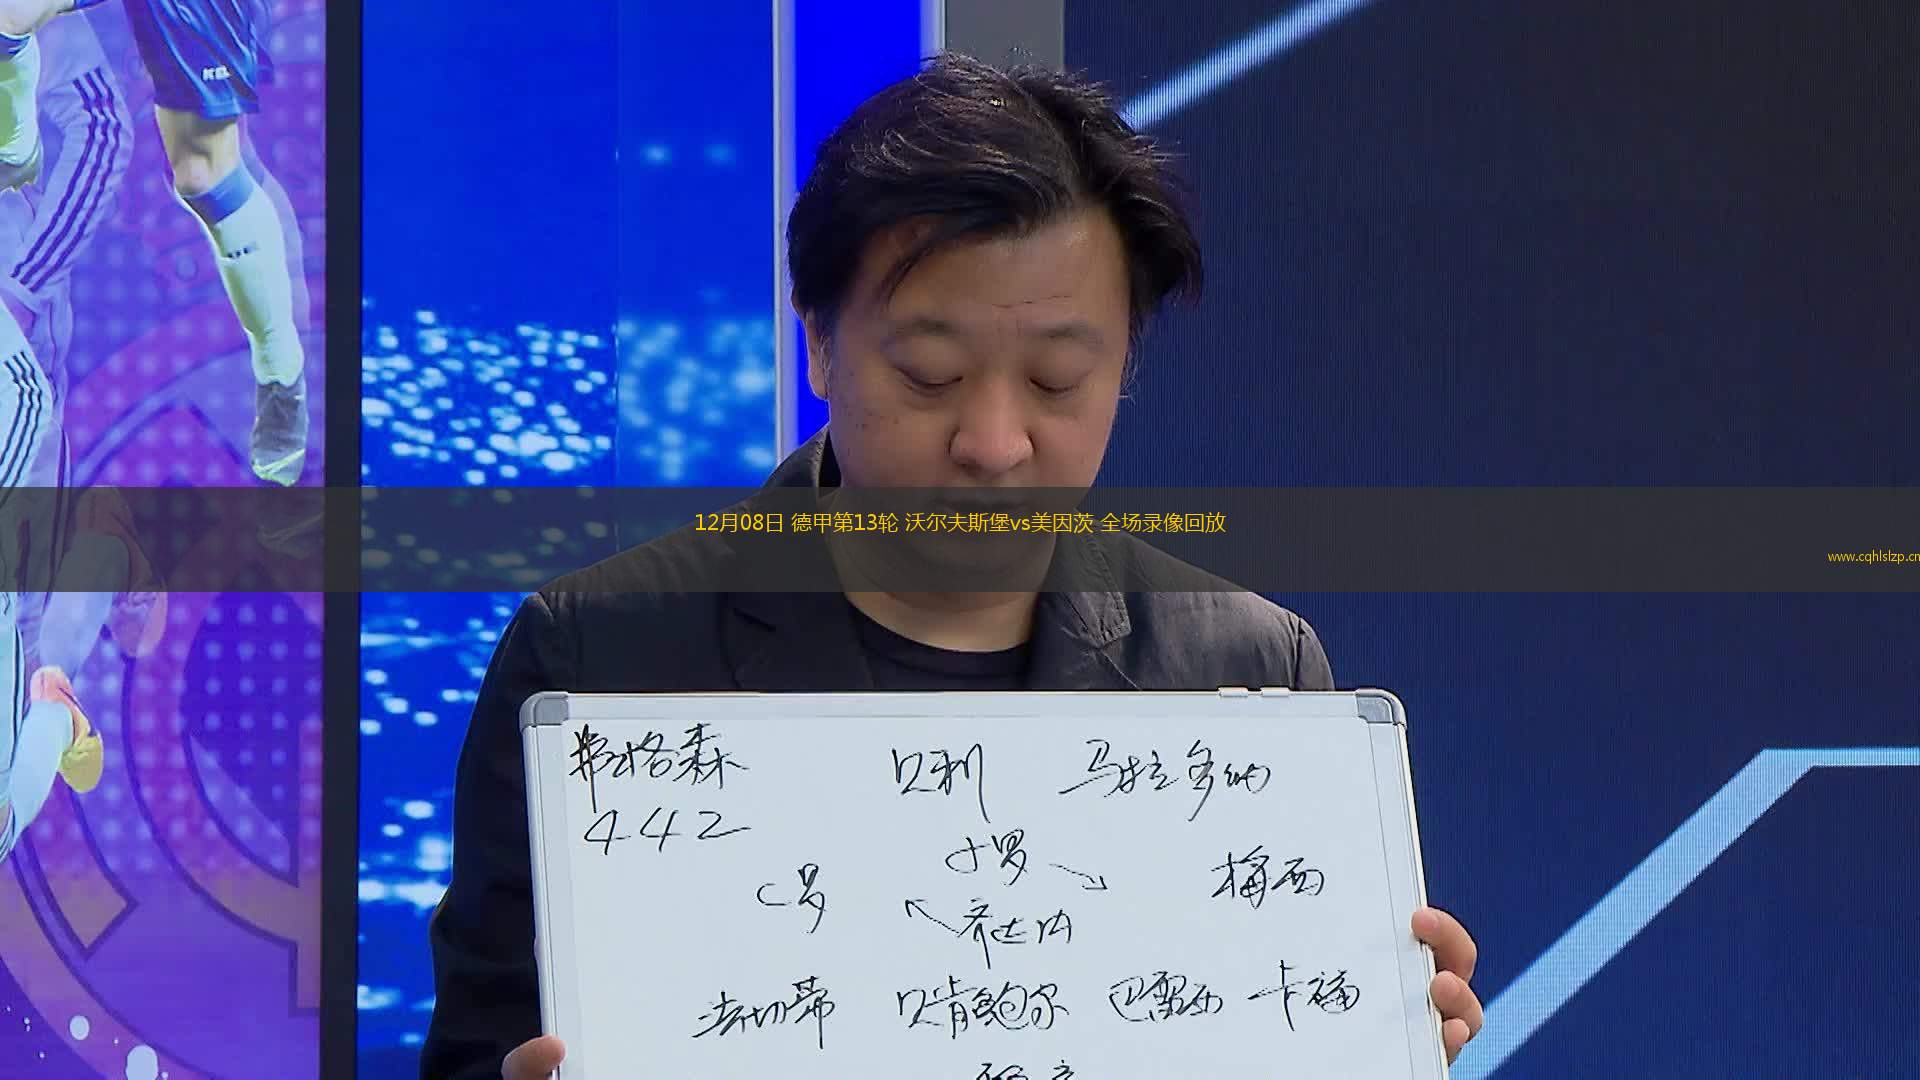 12月08日 德甲第13轮 沃尔夫斯堡vs美因茨 全场录像回放
www.cqhlslzp.cn
弗格森 贝利 马拉多纳
442
小罗
C罗 梅西
齐达内
法切蒂 贝肯鲍尔 巴雷西 卡福